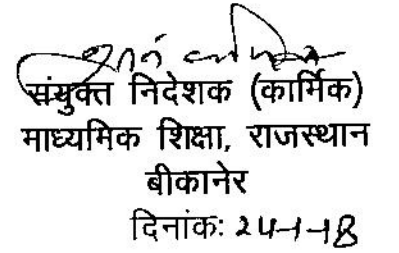 संयुक्त निदेशक (कार्मिक)
माध्यमिक शिक्षा, राजस्थान
बीकानेर
दिनांक: 24-1-18